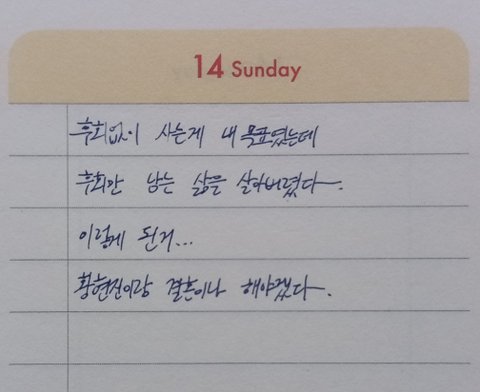 14 Sunday
후회없이 사는게 내 목표였는데
후회만 남는 삶을 살아버렸다.
이렇게 된거...
황현진이랑 결혼이나 해야겠다.